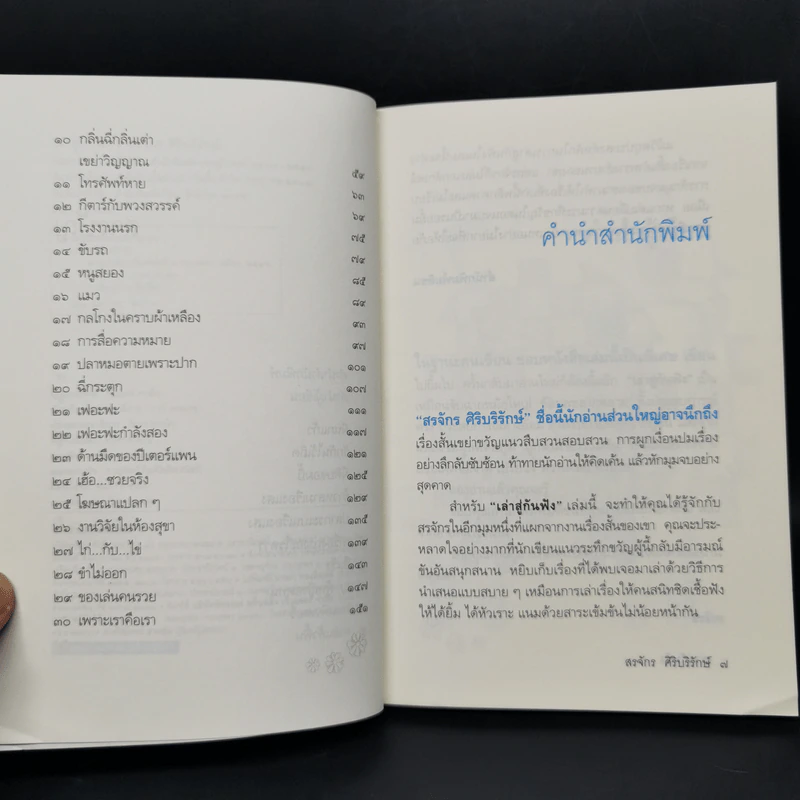 ๑๐ กลิ่นฉี่กลิ่นเต่า
เขย่าวิญญาณ ๕๙
๑๑ โทรศัพท์หาย ๖๓
๑๒ กีตาร์กับพวงสวรรค์ ๖๙
๑๓ โรงงานนรก ๗๕
๑๔ ขับรถ ๗๙
๑๕ หนูสยอง ๘๕
๑๖ แมว ๘๙
๑๗ กลโกงในคราบผ้าเหลือง ๙๓
๑๘ การสื่อความหมาย ๙๗
๑๙ ปลาหมอตายเพราะปาก ๑๐๑
๒๐ ฉี่กระตุก ๑๐๗
๒๑ เฟอะฟะ ๑๑๑
๒๒ เฟอะฟะกำลังสอง ๑๑๗
๒๓ ด้านมืดของปีเตอร์แพน ๑๒๑
๒๔ เฮ้อ...ซวยจริง ๑๒๕
๒๕ โฆษณาแปลก ๆ ๑๒๙
๒๖ งานวิจัยในห้องสุขา ๑๓๕
๒๗ ไก่...กับ...ไข่ ๑๓๙
๒๘ ขำไม่ออก ๑๔๓
๒๙ ของเล่นคนรวย ๑๔๗
๓๐ เพราะเราคือเรา ๑๕๑
คำนำสำนักพิมพ์
“สรจักร ศิริบริรักษ์” ชื่อนี้นักอ่านส่วนใหญ่อาจนึกถึง
เรื่องสั้นเขย่าขวัญแนวสืบสวนสอบสวน การผูกเงื่อนปมเรื่อง
อย่างลึกลับซับซ้อน ท้าทายนักอ่านให้คิดเค้น แล้วหักมุมจบอย่าง
สุดคาด
สำหรับ “เล่าสู่กันฟัง” เล่มนี้ จะทำให้คุณได้รู้จักกับ
สรจักรในอีกมุมหนึ่งที่แผกจากงานเรื่องสั้นของเขา คุณจะประ-
หลาดใจอย่างมากที่นักเขียนแนวระทึกขวัญผู้นี้กลับมีอารมณ์
ขันอันสนุกสนาน หยิบเก็บเรื่องที่ได้พบเจอมาเล่าด้วยวิธีการ
นำเสนอแบบสบาย ๆ เหมือนการเล่าเรื่องให้คนสนิทชิดเชื้อฟัง
ให้ได้ยิ้ม ได้หัวเราะ แนมด้วยสาระเข้มข้นไม่น้อยหน้ากัน
สรจักร ศิริบริรักษ์ ๗